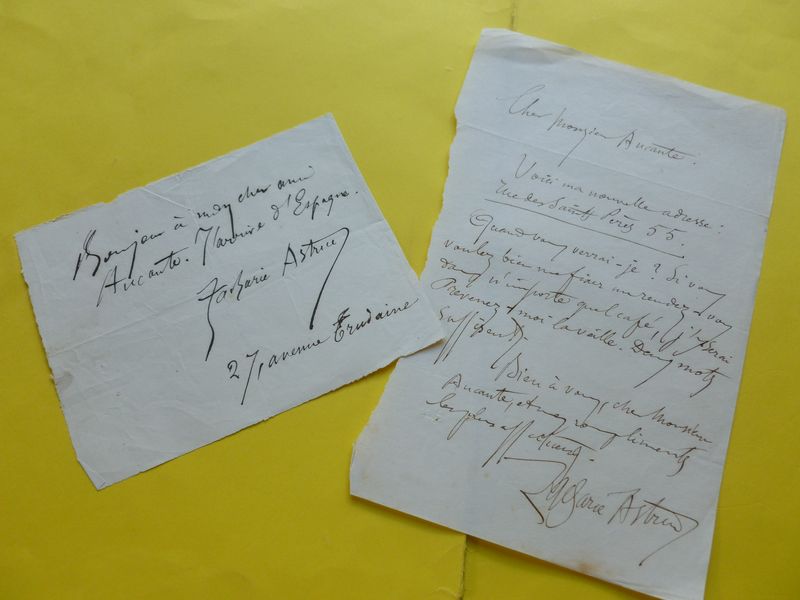 Bonjour à mon cher ami
Aucante. J'arrive d'Espagne.
Zacharie Astruc
27, avenue Trudaine
Cher Monsieur Aucante.
Voici ma nouvelle adresse:
Rue des Saints Pères 55.
Quand vous verrai-je? Si vous
voulez bien me fixer un rendez-vous
dans n'importe quel café, j'y serai
Prévenez-moi la veille. Deux mots
suffisent.
Bien à vous, cher Monsieur
Aucante, et mes compliments
les plus affectueux.
Zacharie Astruc